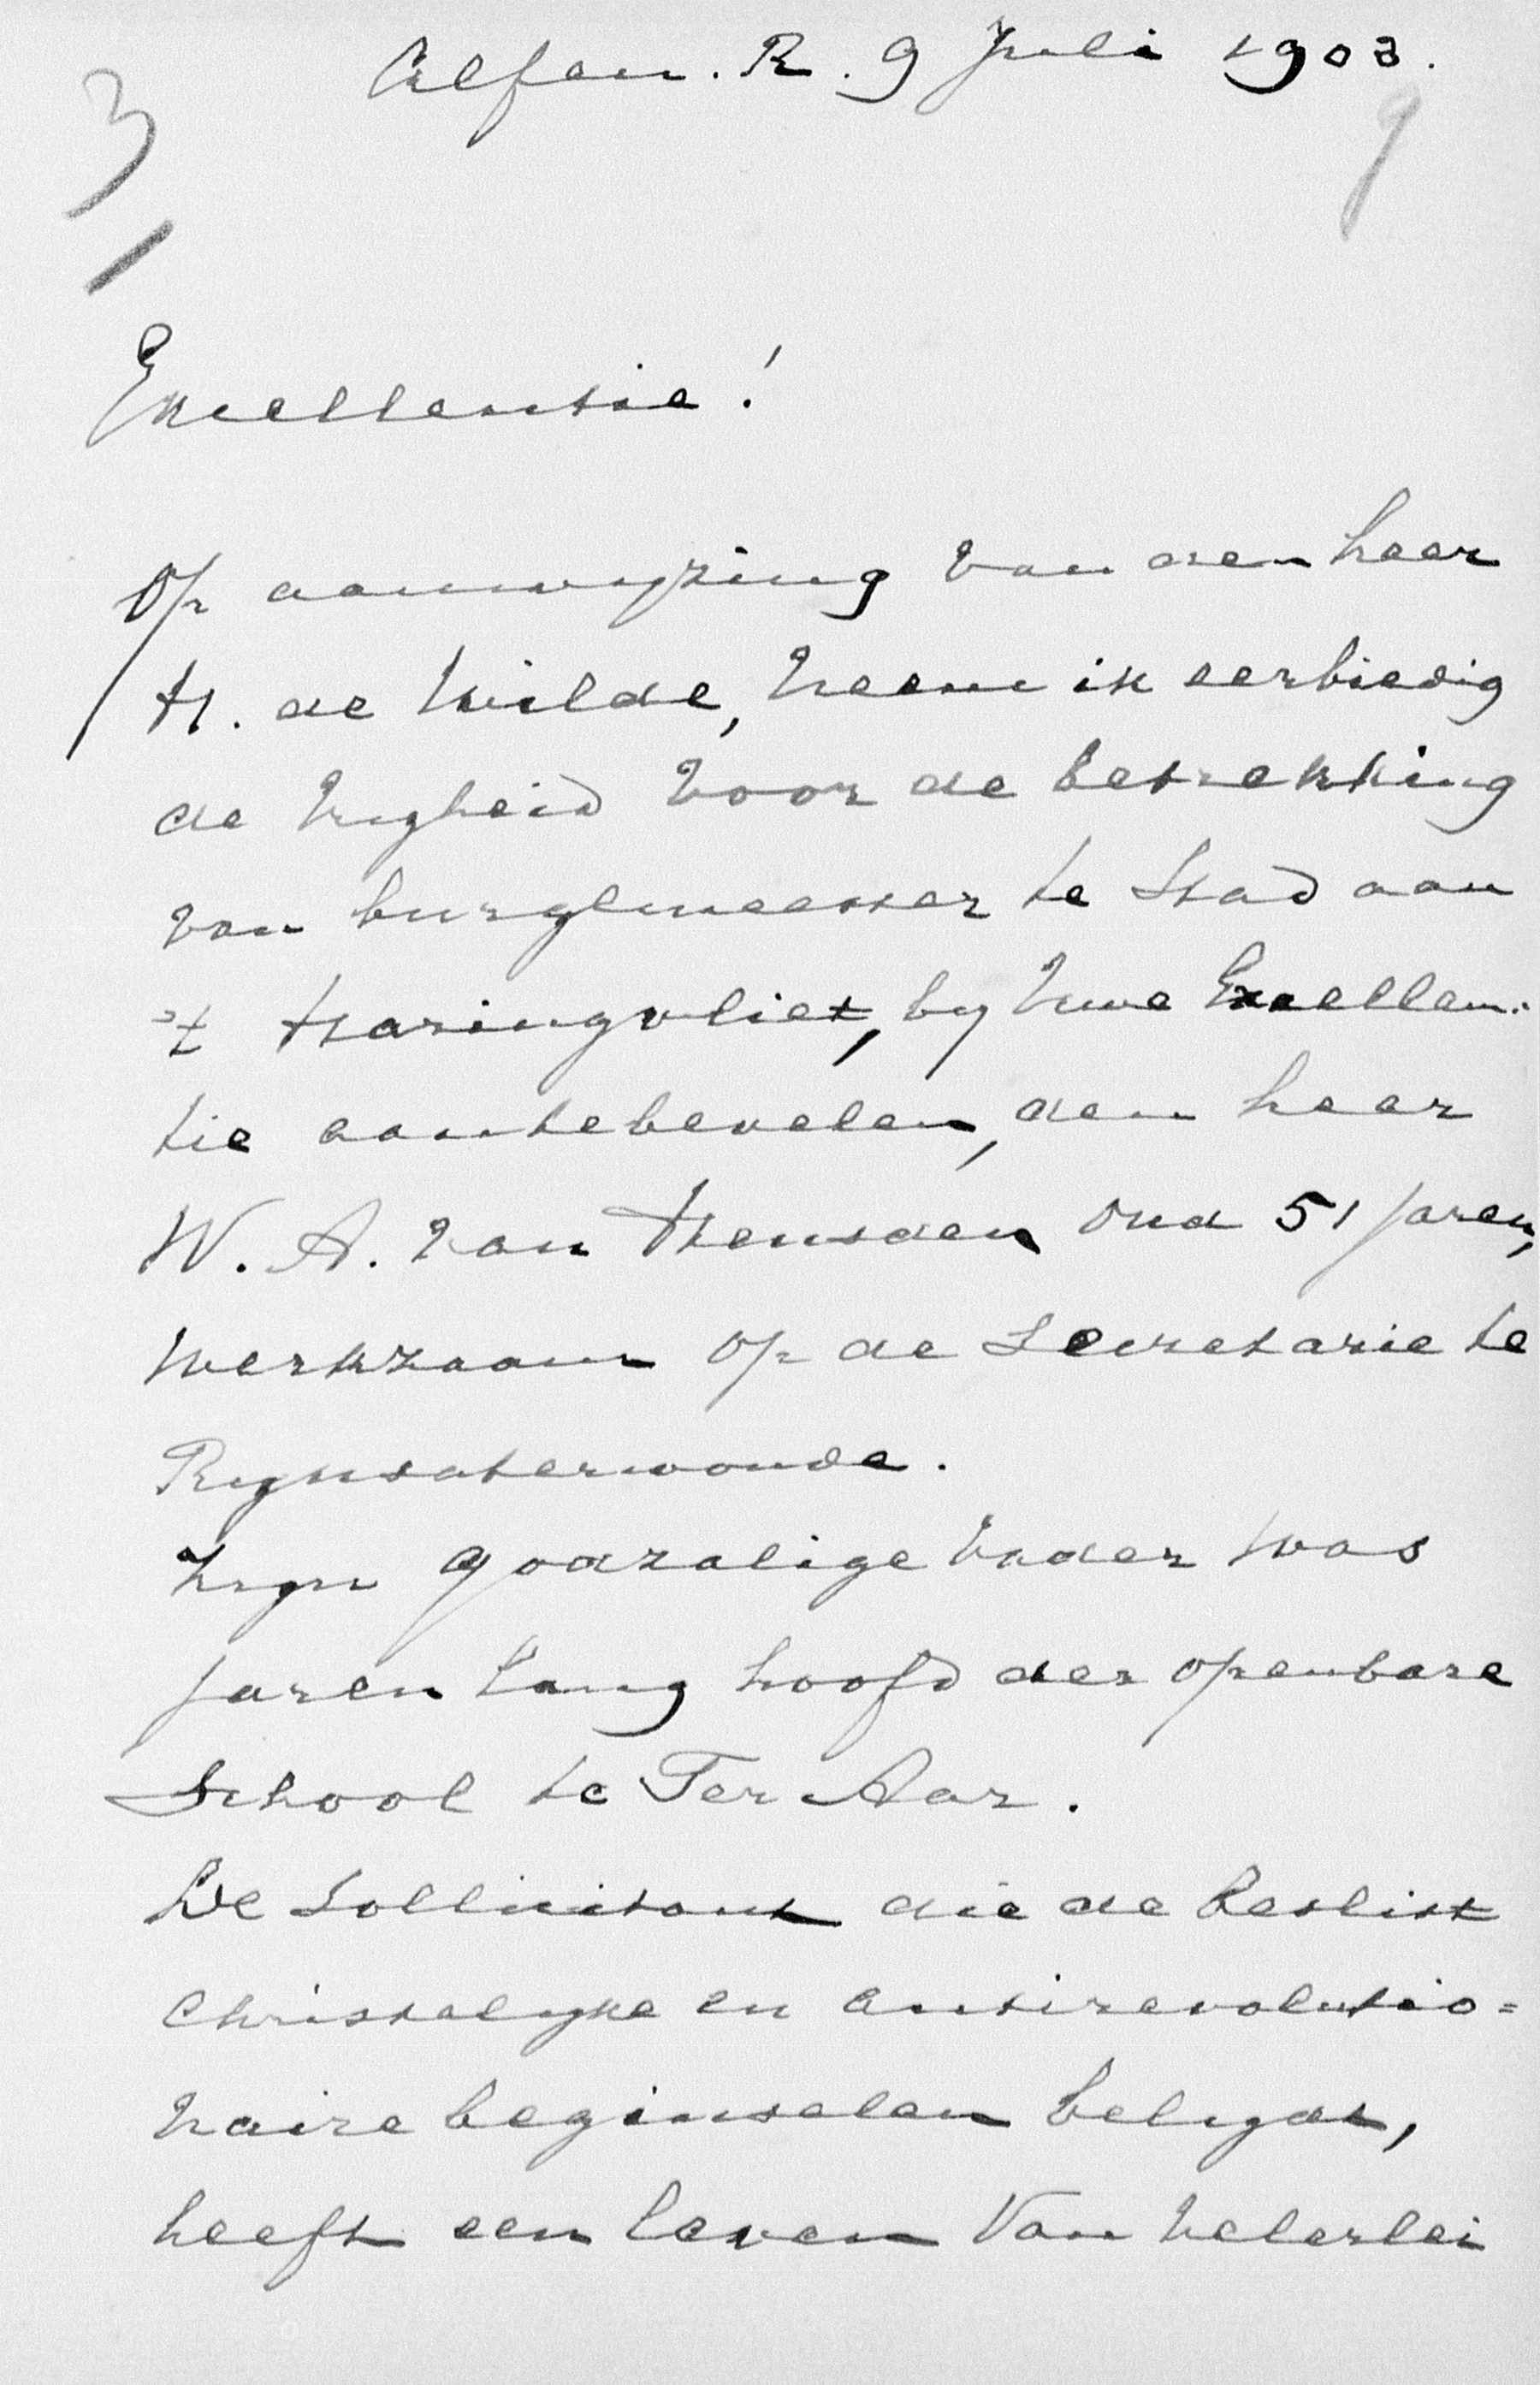 Alfen. R. 9 Juli 1903.
3
9
Excellentie!
Op aanwijzing van den heer
H. de Wilde, neem ik eerbiedig
de vrijheid voor de betrekking
van burgemeester te Stad aan
't Haringvliet, by Uwe Excellen:
tie aantebevelen, den heer
W. A. van Heusden oud 51 jaren,
werkzaam op de Secretarie te
Rynsaterwoude.
Zyn godzalige vader was
jaren lang hoofd der openbare
School te Ter Aar.
De Sollicitant die de beslist
Christelyke en antirevolutio=
naire beginselen belydt,
heeft een leven van velerlei